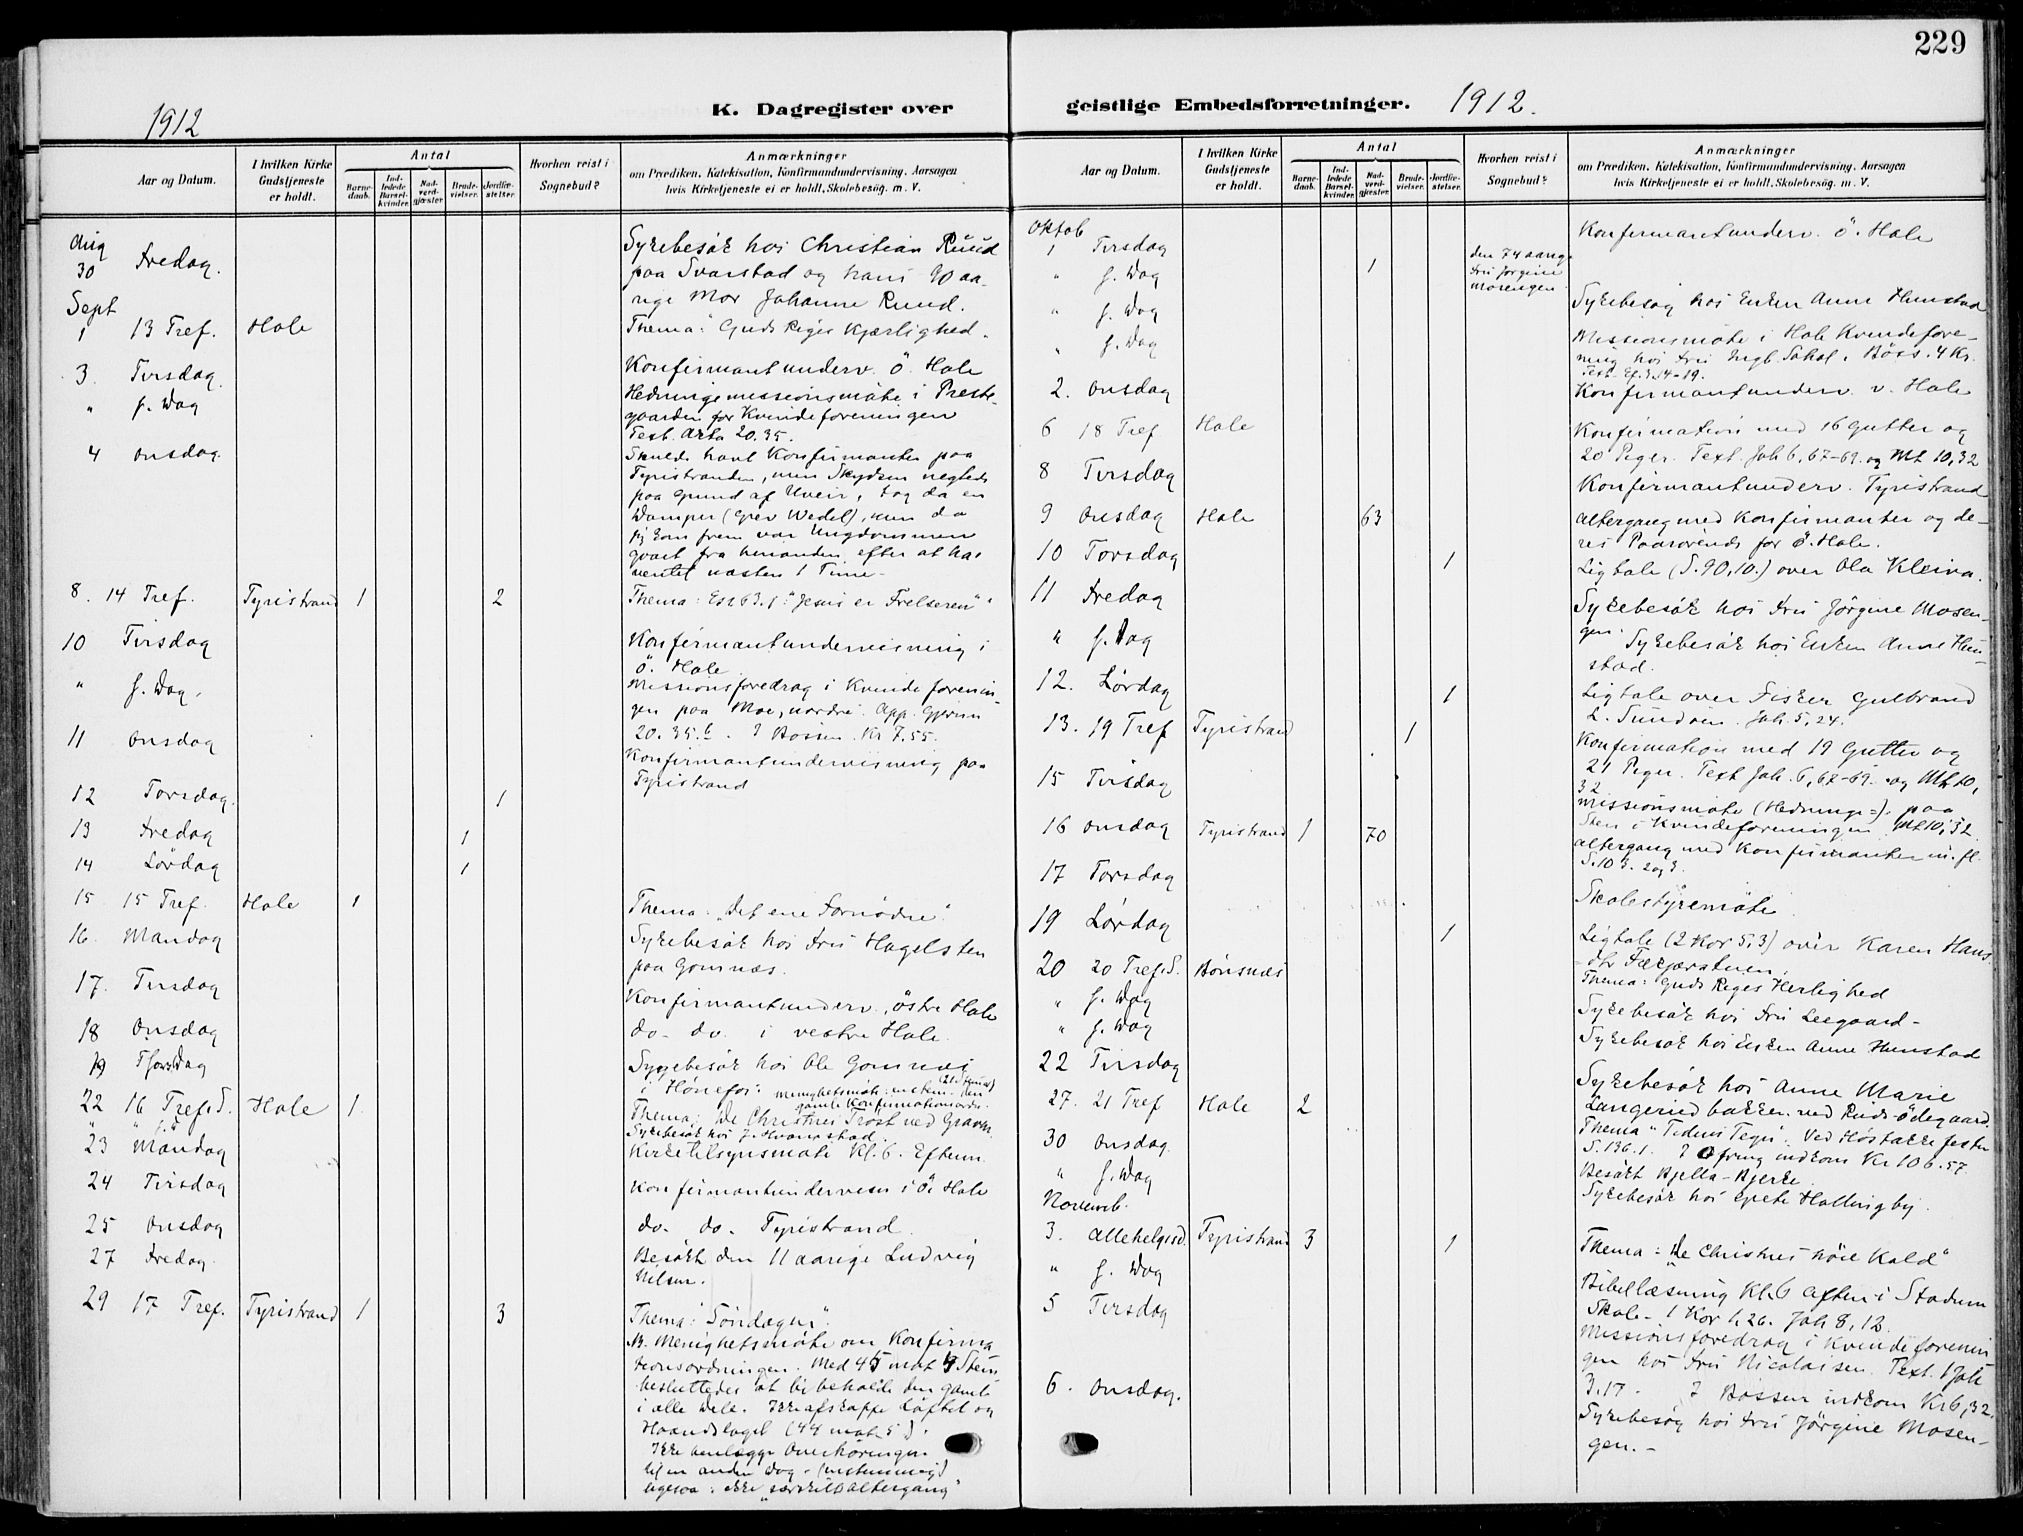 229
1912
K. Dagregister over
geistlige Embedsforretninger. 1912.
Aar og Datum.
I hvilken Kirke Gudstjeneste er holdt.
Antal
Barnedaab.
Indledede Barselkvinder.
Nadverdgjæster.
Brudevielser.
Jordfæstelser.
Hvorhen reist i Sognebud?
Anmærkninger
om Prædiken, Katekisation, Konfirmandundervisning, Aarsagen
hvis Kirketjeneste ei er holdt, Skolebesög. m. V.
Aug
30 Fredag. Sykebesök hos Christian Ruud
paa Svarstad og hans 90 aa-
rige Mor Johanne Ruud.
Sept
1 13 Tref. Hole Thema: Guds Riges Kjærlighed.
3. Tirsdag Konfirmantunderv. Ö. Hole
" s. Dag Hedningemissionsmöte i Preste-
gaarden for Kvindeforeningen
Text. Akta 20.35.
4 Onsdag. Skulde havt Konfirmanter paa
Tyristranden, men Skydsen negtedes
paa Grund af Uveir, tog da en
Damper (Grev Wedel), men da
jeg kom frem var Ungdommen
gaaet fra hinanden efter at ha
ventet næsten 1 Time.
8. 14 Tref. Tyristrand 1 2 Thema: Es 63.1: "Jesus er Frelseren".
10 Tirsdag Konfirmantundervisning i
Ö. Hole
" s. Dag. Missionsforedrag i Kvindeforenin-
gen paa Moe, nordre. App. Gjern
20.35. I Bössen Kr 7.55.
11 Onsdag Konfirmantundervisning paa
Tyristrand
12 Torsdag. 1
13 Fredag 1
14 Lördag 1
15 15 Tref. Hole 1 Thema: "Det ene Fornödne".
16. Mandag Sykebesök hos Fru Hagelsten
paa Gomnæs.
17. Tirsdag Konfirmantunderv. östre Hole
18 Onsdag do. do. i vestre Hole.
19 Torsdag Sygebesök hos Ole Gomnæs
i Hönefos.
22 16 Tref. S. Hole 1. Thema: De Christnes Tröst ved Graven.
23 Mandag Kirketilsynsmöte Kl. 6. Efterm.
24 Tirsdag Konfirmantundervisn i Ö. Hole
25 Onsdag do. do. Tyristrand
27 Fredag. Besökt den 11 aarige Ludvig
Nilsen.
29 17 Tref. Tyristrand 1 3 Thema: "Söndagen".
Menighetsmöte om Konfirma
tionsordningen. Med 45 mot 4 Stem.
besluttedes at bibeholde den gamle
i alle Dele. Ikke afskaffe Löftet og
Haandslaget (44 mot 5).
Ikke henlegge Overhöringen
til en anden Dag - (enstemmig)
ligesaa: ikke "særskilt altergang"
Aar og Datum.
I hvilken Kirke Gudstjeneste er holdt.
Antal
Barnedaab.
Indledede Barselkvinder.
Nadverdgjæster.
Brudevielser.
Jordfæstelser.
Hvorhen reist i Sognebud?
Anmærkninger
om Prædiken, Katekisation, Konfirmandundervisning, Aarsagen
hvis Kirketjeneste ei er holdt, Skolebesög. m. V.
Oktob
1 Tirsdag Konfirmantunderv. Ö. Hole
" s. Dag 1 den 74 aarige Fru Jørgine Mosengen
" s. Dag Sykebesög hos Enken Anne Hunstad
" s. Dag Missionsmöte i Hole Kvindefore-
ning hos Fru Ingb. Böss. 4 Kr.
Text Ef. 3.14-19.
2. Onsdag Konfirmantunderv. v. Hole
6 18 Tref Hole Konfirmation med 16 Gutter og
20 Piger. Text Joh 6, 67-69. og Mt 10,32
8 Tirsdag Konfirmantunderv. Tyristrand
9 Onsdag Hole 63 Altergang med Konfirmanter og de-
res Paarørende for Ö. Hole.
10 Torsdag 1 Ligtale (S. 90,10.) over Ola Kleiva.
11 Fredag Sykebesök hos Fru Jörgine Mosen-
gen.
" s. Dag Sykebesök hos Enken Anne Hun-
stad.
12. Lördag 1 Ligtale over Fisker Gulbrand
L. Sundöen. Joh. 5, 24.
13. 19 Tref Tyristrand 1 Konfirmation med 19 Gutter og
21 Piger. Text Joh. 6, 67-69. og Mt 10,
32
15 Tirsdag Missionsmöte (Hedninge=). paa
Sten i Kvindeforeningen. Mt 10,32
16 Onsdag Tyristrand 1 70 Altergang med Konfirmanter m. fl.
S. 103. 2 og 3.
17 Torsdag Skolestyremöte
19 Lördag 1 Ligtale (2 Kor 5,3) over Karen Hans.
20 20 Tref. S. Bönsnæs Thema: Guds Riges Herlighed
" s. Dag Sykebesök hos Fru Leegaard-
" s. Dag Sykebesök hos Enken Anne Hunstad
22 Tirsdag Sykebesök hos Anne Marie
Langeriedbakken ved Ruds-Ödegaard
27. 21 Tref Hole 2 Thema "Tidens Tegn". Ved Höstakkefesten
S. 136.1. I Ofring indkom Kr 106.57.
30 Onsdag Besökt Bjella-Bjerke
" s. Dag Sykebesök hos Hallingby.
Novemb.
3. Allehelgesd. Tyristrand 3 1 Thema: "De Christnes höie Kald"
" s. Dag Bibellæsning Kl. 6 Aften i Stadum
Skole- 1 Kor 1,26. Joh 8,12.
5 Tirsdag Missionsforedrag i Kvindeforenin
gen hos Fru Nicolaisen. Text. 1 Joh
3.17. I Bössen indkom Kr 6,32.
6. Onsdag. Sykebesög hos Fru Jörgine Mosen-
gen.-